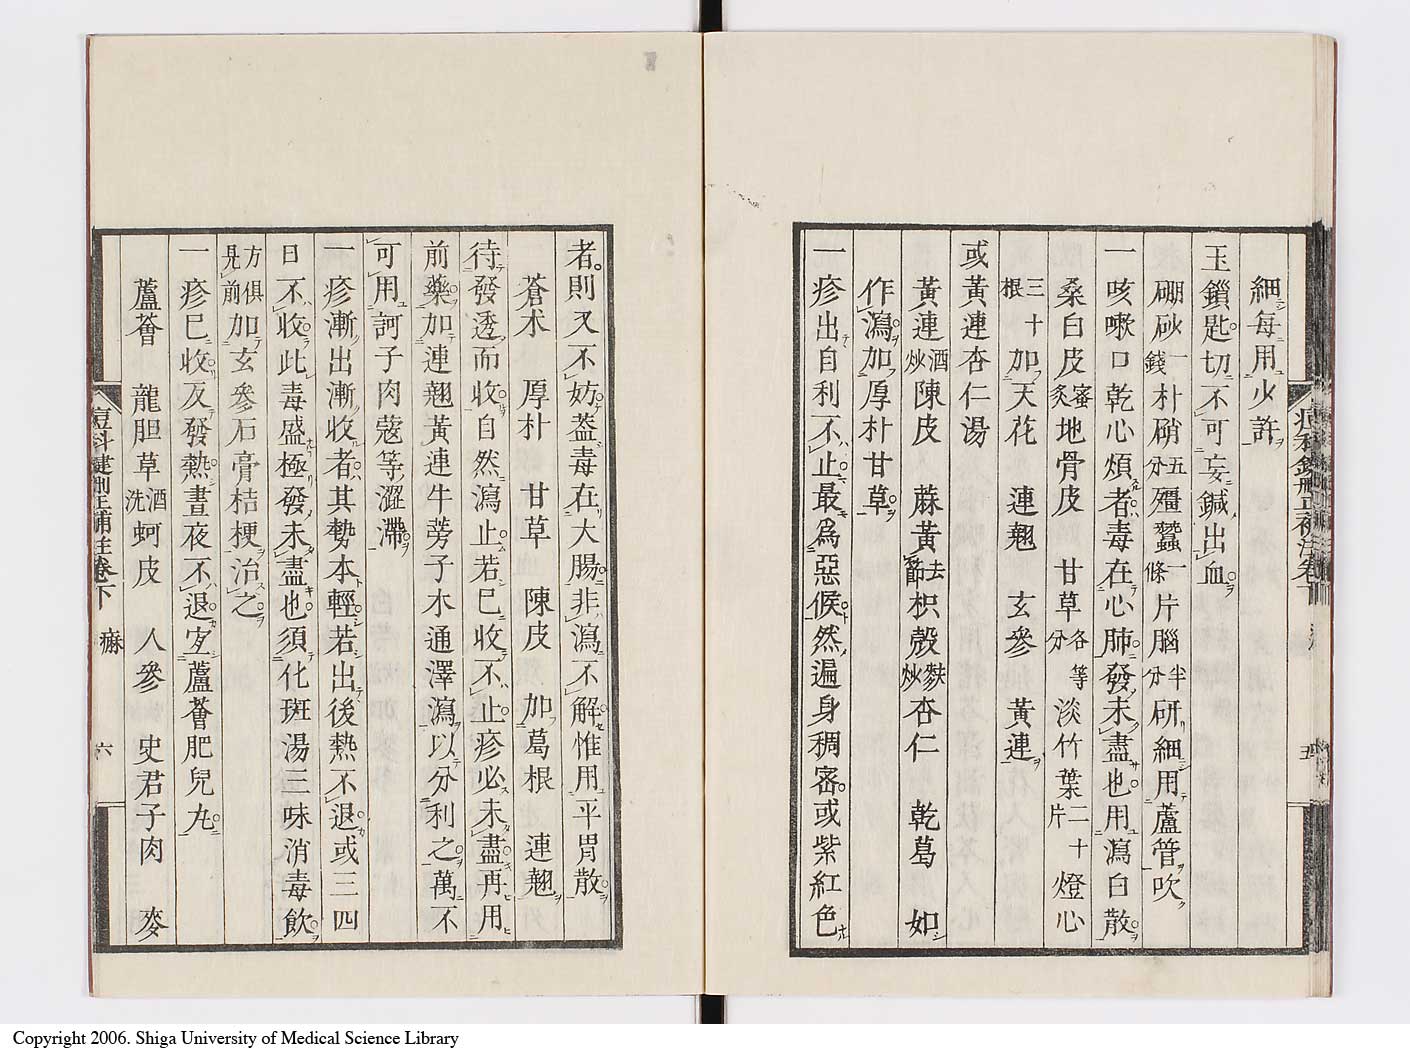 細毎用少許
玉鎖匙切不可妄鍼出血
硼砂一錢朴硝五分殭蠶一條片腦半分研細用蘆管吹
一咳嗽口乾心煩者毒在心肺發未盡也用瀉白散
桑白皮蜜炙地骨皮 甘草各等分 淡竹葉二十片 燈心
三十根加天花 連翹 玄參 黃連
或黃連杏仁湯
黃連酒炒陳皮 蔴黃去節枳殼麩炒杏仁 乾葛 如
作瀉加厚朴甘草
一疹出自利不止最爲惡候然遍身稠密或紫紅色
者則又不妨葢毒在大腸非瀉不解惟用平胃散
蒼朮 厚朴 甘草 陳皮 加葛根 連翹
待發透而收自然瀉止若已收不止疹必未盡再用
前藥加連翹黃連牛蒡子木通澤瀉以分利之萬不
可用訶子肉蔻等澀滯
一疹漸出漸收者其勢本輕若出後熱不退或三四
日不收此毒盛極發未盡也須化斑湯三味消毒飲
方俱見前加玄參石膏桔梗治之
一疹已收反發熱晝夜不退宜蘆薈肥兒丸
蘆薈 龍胆草酒洗蚵皮 人參 史君子肉 麥
痘科鍵刪正補注卷下 痳 六
Copyright 2006. Shiga University of Medical Science Library